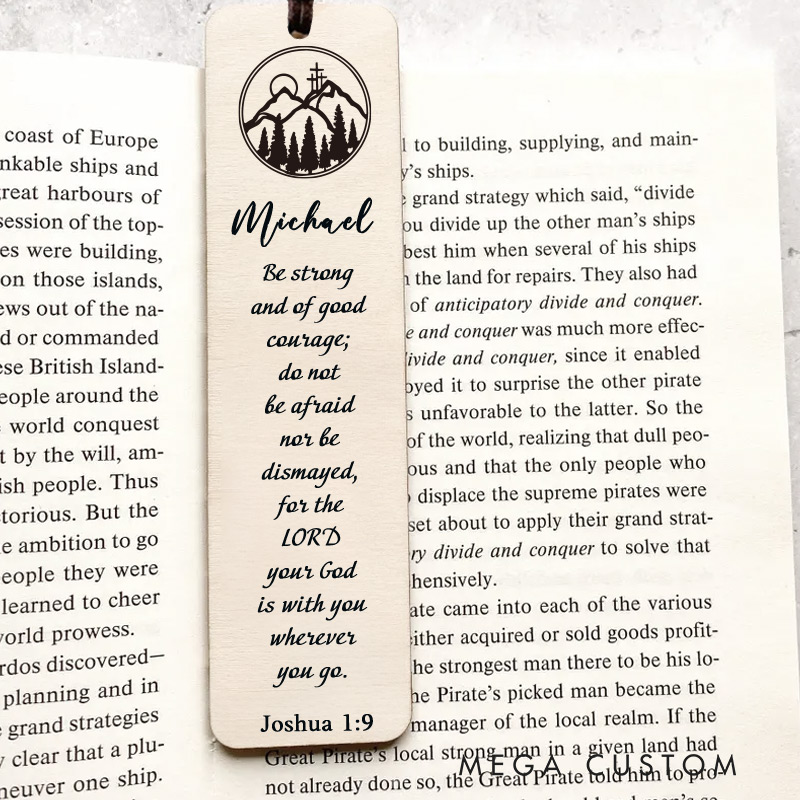 Michael
Be strong
and of good
courage;
do not
be afraid
nor be
dismayed,
for the
LORD
your God
is with you
wherever
you go.
Joshua 1:9
coast of Europe
ships and
harbours of
of the top-
were building,
on those islands,
out of the na-
or commanded
British Island-
around the
world conquest
by the will, am-
people. Thus
But the
ambition to go
they were
learned to cheer
prowess.
discovered—
planning and in
grand strategies
clear that a plu-
one ship.
to building, supplying, and main-
ships.
grand strategy which said, “divide
divide up the other man’s ships
best him when several of his ships
the land for repairs. They also had
of anticipatory divide and conquer.
and conquer was much more effec-
divide and conquer, since it enabled
it to surprise the other pirate
unfavorable to the latter. So the
of the world, realizing that dull peo-
and that the only people who
displace the supreme pirates were
set about to apply their grand strat-
divide and conquer to solve that
came into each of the various
either acquired or sold goods profit-
the strongest man there to be his lo-
the Pirate’s picked man became the
manager of the local realm. If the
Great Pirate’s local strong-man in a given land had
not already done so, the Great Pirate told him to pro-
MEGA CUSTOM